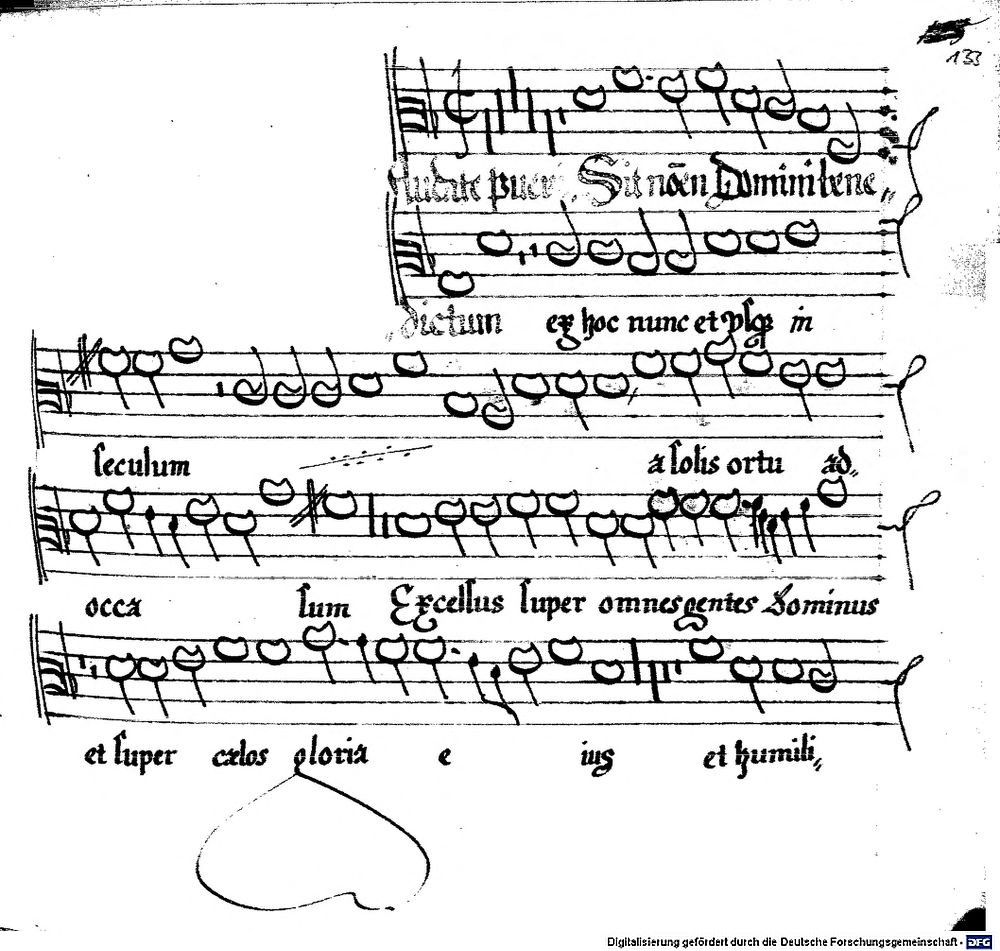 133
Laudate pueri Sit nōen Domini bene„
dictum ex hoc nunc et usqꝫ in
seculum a solis ortu ad„
occa sum Excelsus super omnes gentes Dominus
et super cælos gloria e ius et humili„
Digitalisierung gefördert durch die Deutsche Forschungsgemeinschaft - DFG